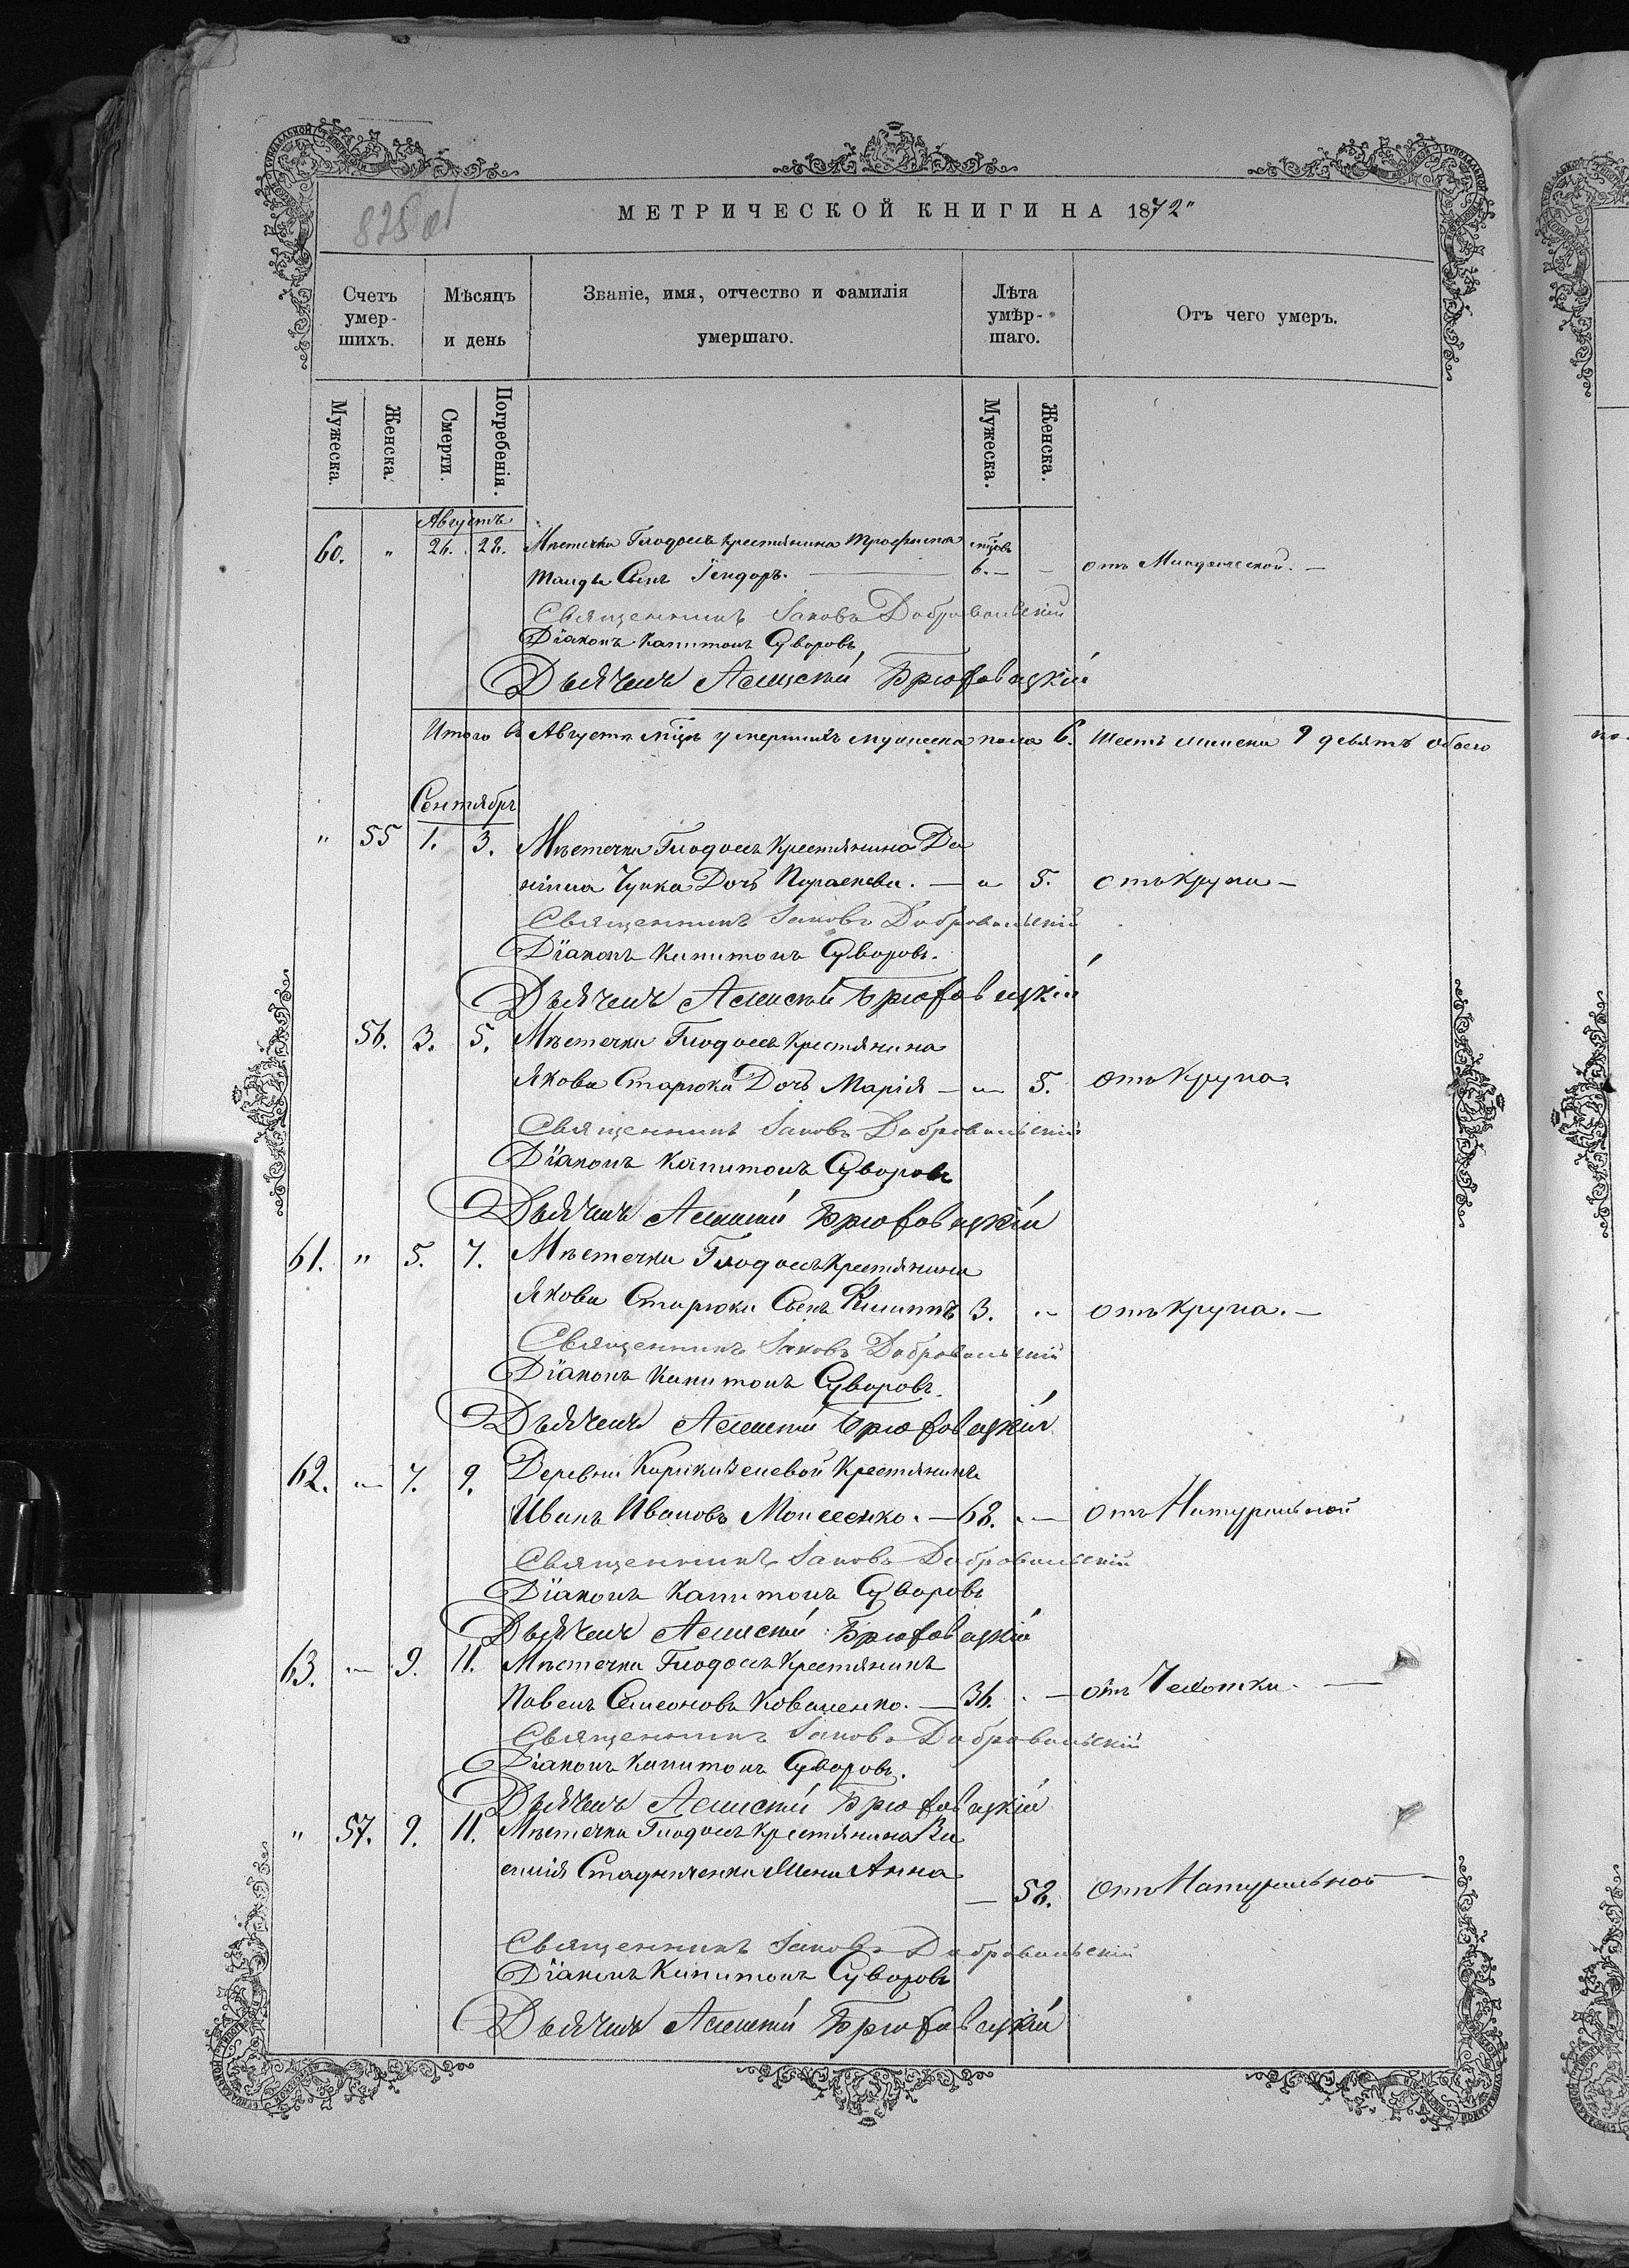 МЕТРИЧЕСКОЙ КНИГИ НА 1872"
Счетъ умер-шихъ.
Мѣсяцъ и день
Званіе, имя, отчество и фамилія умершаго.
Лѣта умѣр-шаго.
Отъ чего умеръ.
Мужеска.
Женска.
Смерти.
Погребенія.
Мужеска.
Женска.
Августъ
60. " 26. 28. Мѣстечка Глодосъ крестянина Трофима мѣцовъ
Сынъ Ѳеодоръ. — 6. — отъ —
Священникъ Іаковъ Добровольскій
Діаконъ Капитонъ Суворовъ
Дьячекъ Алексѣй Брюховецкій
Итого въ Августѣ мцѣ умершихъ мужеска пола 6. шесть женска 9 девять обоего
Сентябрь
" 55 1. 3. Мѣстечка Глодосъ Крестянина Да
ніила Чупка Дочь Параскева. — „ 5. отъ крупа —
Священникъ Іаковъ Добровольскій
Діаконъ Капитонъ Суворовъ.
Дьячекъ Алексѣй Брюховецкій
56. 3. 5. Мѣстечка Глодосъ Крестянина
Якова Старюка Дочь Марія — „ 5. отъ Крупа.
Священникъ Іаковъ Добровольскій
Діаконъ Капитонъ Суворовъ
Дьячекъ Алексѣй Брюховецкій
61. " 5. 7. Мѣстечка Глодосъ Крестянина
Якова Старюка Сынъ Филиппъ 3. „ отъ Крупа. —
Священникъ Іаковъ Добровольскій
Діаконъ Капитонъ Суворовъ.
Дьячекъ Алексѣй Брюховецкій
62. „ 7. 9. Деревни Крестянинъ
Иванъ Ивановъ Моисеенко. — 68. „ — отъ Натуральной
Священникъ Іаковъ Добровольскій
Діаконъ Капитонъ Суворовъ
Дьячекъ Алексѣй Брюховецкій
63. „ 9. 11. Мѣстечка Глодосъ Крестянинъ
Павелъ Симеоновъ Коваленко. — 36. . — отъ Чехотки. —
Священникъ Іаковъ Добровольскій
Діаконъ Капитонъ Суворовъ.
Дьячекъ Алексѣй Брюховецкій
" 57. 9. 11. Мѣстечка Глодосъ Крестянина Ва
силія Стадниченка Жена Анна — 58. отъ Натуральной —
Священникъ Іаковъ Добровольскій
Діаконъ Капитонъ Суворовъ
Дьячекъ Алексѣй Брюховецкій